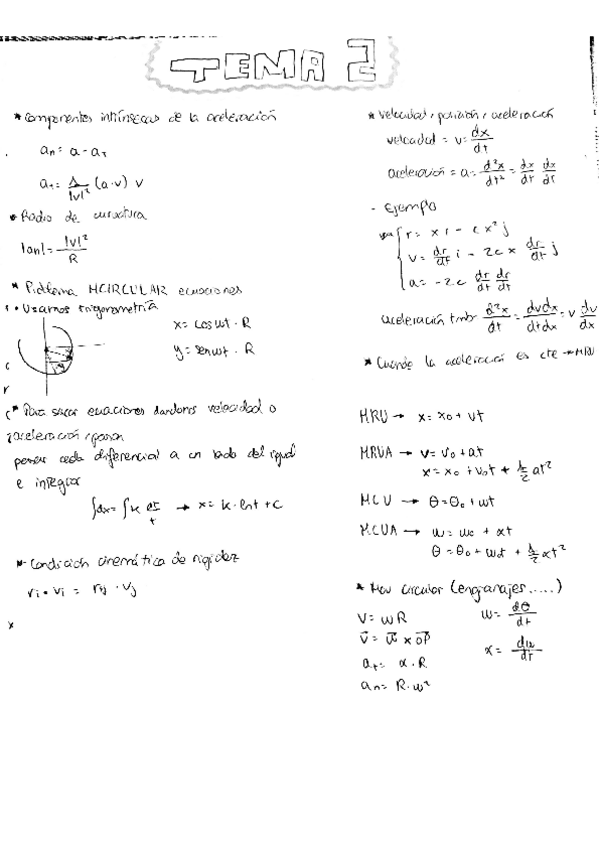 TEMA 2
* Componentes intrínsecas de la aceleración
an = a - aT
aT = 1/|v|² (a·v) v
* Radio de curvatura
|an| = |v|²/R
* Problema MCIRCULAR ecuaciones
• Usamos trigonometría
x = coswt · R
y = senwt · R
* Para sacar ecuaciones dandonos velocidad o
aceleración, pasan
poner cada diferencial a un lado del igual
e integrar
∫dx = ∫k dt/t → x = k·lnt + C
* Condición cinemática de rigidez
ri · vi = rij · vj
* Velocidad, posición, aceleración
velocidad = v = dx/dt
aceleración = a = d²x/dt² = dx/dt dx/dt
- Ejemplo
r = x i - c x² j
v = dr/dt i - 2c x dr/dt j
a = -2c dr/dt dr/dt
aceleración tmb d²x/dt = dvdx/dtdx = v dv/dx
* Cuando la aceleración es cte → MRU
MRU → x = x0 + vt
MRUA → v = v0 + at
x = x0 + v0t + 1/2 at²
MCU → θ = θ0 + wt
MCUA → w = w0 + αt
θ = θ0 + w0t + 1/2 αt²
* Mov circular (engranajes.....)
v = wR
w = dθ/dt
v = w × OP
α = dw/dt
at = α · R
an = R · w²